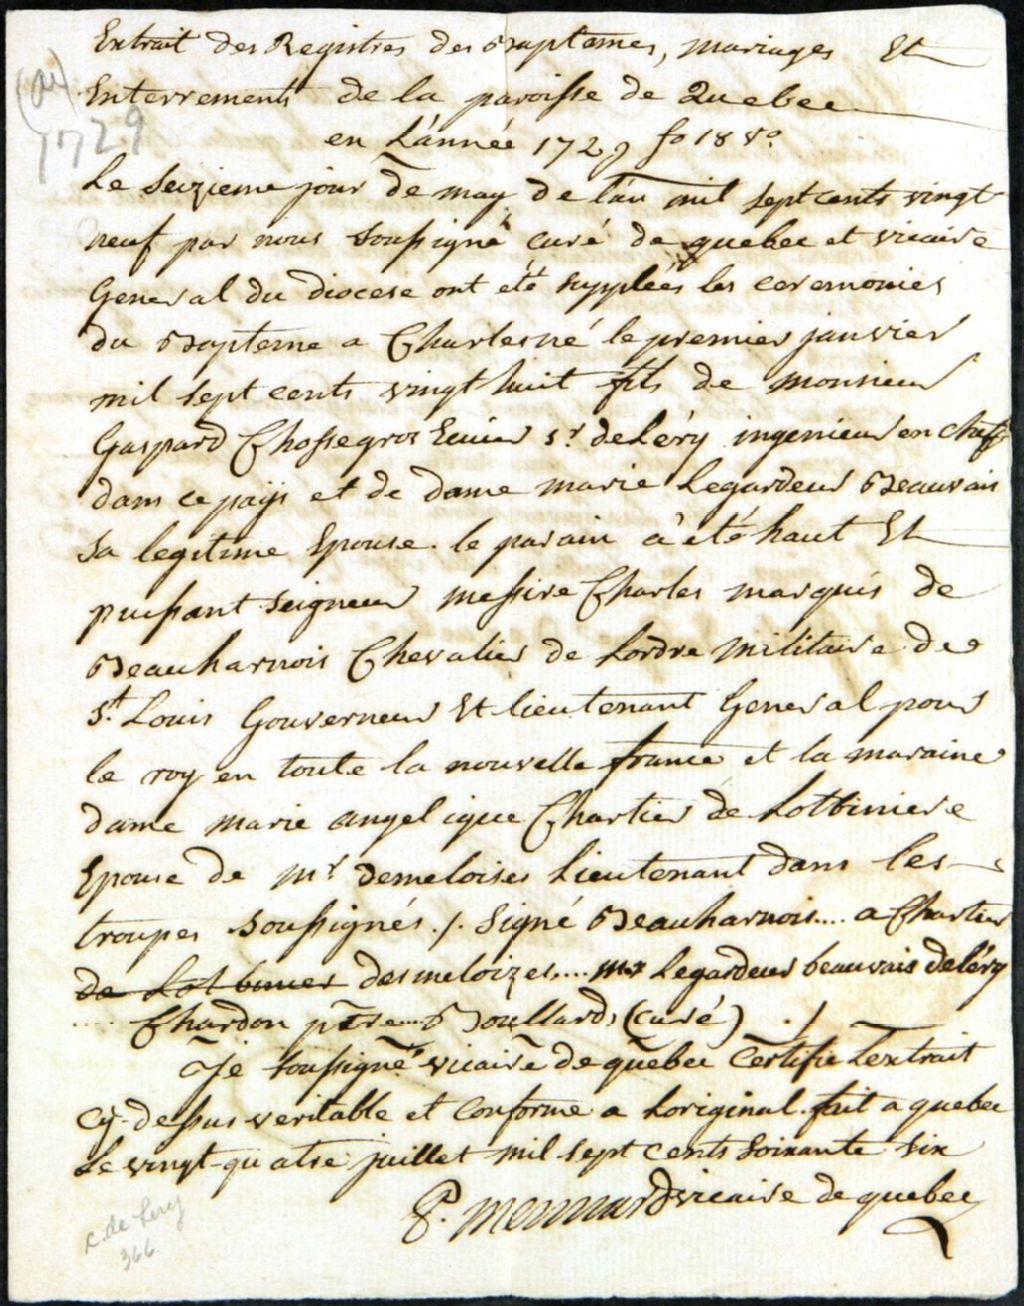 Extrait des Registres des Baptemes, mariages Et
Enterrements de la paroisse de Quebec
en L'année 1729 fo 18 vo.
(a)
1729
Le Seizieme jour de may de l'an mil sept cents vingt
neuf par nous Soussigné curé de quebec et vicaire
General du diocese ont été supplées les ceremonies
du Bapteme a Charles né le premier janvier
mil sept cents vingt huit fils de monsieur
Gaspard Chossegros Ecuier sr. deLéry ingenieur en chef
dans ce païs et de dame marie Legardeur Beauvais
Sa legitime Epouse. le parain à eté haut Et
puissant Seigneur messire Charles marquis de
Beauharnois Chevalier de Lordre militaire de
St. Louis Gouverneur Et lieutenant General pour
le roy en toute la nouvelle france et la maraine
dame marie angelique Chartier de Lotbiniere
Epouse de Mr demeloises Lieutenant dans les
troupes Soussignés ./. Signé Beauharnois.... a Chartier
de Lotbinier desmeloizes.... mr Legardeur beauvais deléry
.... Chardon ptre.... Boullard, (curé) ./
Je Soussigné vicaire de quebec Certifie L'extrait
Cy-dessus veritable et Conforme a Loriginal. fait a quebec
Le vingt-quatre juillet mil sept cents Soixante six
P. Mennard vicaire de quebec
c. de Lery
366